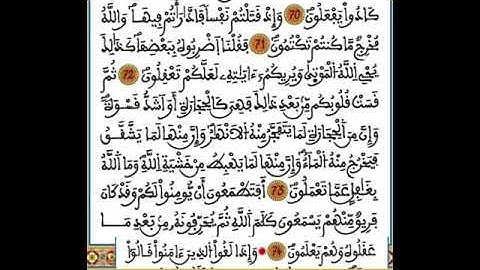 كَادُواْ يَفْعَلُونَ 70 وَإِذْ قَتَلْتُمْ نَفْساً فَادَّٰرَأْتُمْ فِيهَا وَاللَّهُ
مُخْرِجٌ مَّا كُنتُمْ تَكْتُمُونَ 71 فَقُلْنَا اَضْرِبُوهُ بِبَعْضِهَا كَذَٰلِكَ
يُحْيِ اِللَّهُ الْمَوْتَىٰ وَيُرِيكُمُ ءَايَٰتِهِ لَعَلَّكُمْ تَعْقِلُونَ 72 ثُمَّ
قَسَتْ قُلُوبُكُم مِّنْ بَعْدِ ذَٰلِكَ فَهِيَ كَالْحِجَارَةِ أَوَ اَشَدُّ قَسْوَةً
وَإِنَّ مِنَ اَلْحِجَارَةِ لَمَا يَتَفَجَّرُ مِنْهُ الْأَنْهَٰرُ وَإِنَّ مِنْهَا لَمَا يَشَّقَّقُ
فَيَخْرُجُ مِنْهُ الْمَآءُ وَإِنَّ مِنْهَا لَمَا يَهْبِطُ مِنْ خَشْيَةِ اِللَّهِ وَمَا اَللَّهُ
بِغَٰفِلٍ عَمَّا تَعْمَلُونَ 73 أَفَتَطْمَعُونَ أَنْ يُّومِنُواْ لَكُمْ وَقَدْ كَانَ
فَرِيقٌ مِّنْهُمْ يَسْمَعُونَ كَلَٰمَ اَللَّهِ ثُمَّ يُحَرِّفُونَهُ مِنْ بَعْدِ مَا
عَقَلُوهُ وَهُمْ يَعْلَمُونَ 74 وَإِذَا لَقُواْ الَّذِينَ ءَامَنُواْ قَالُواْ